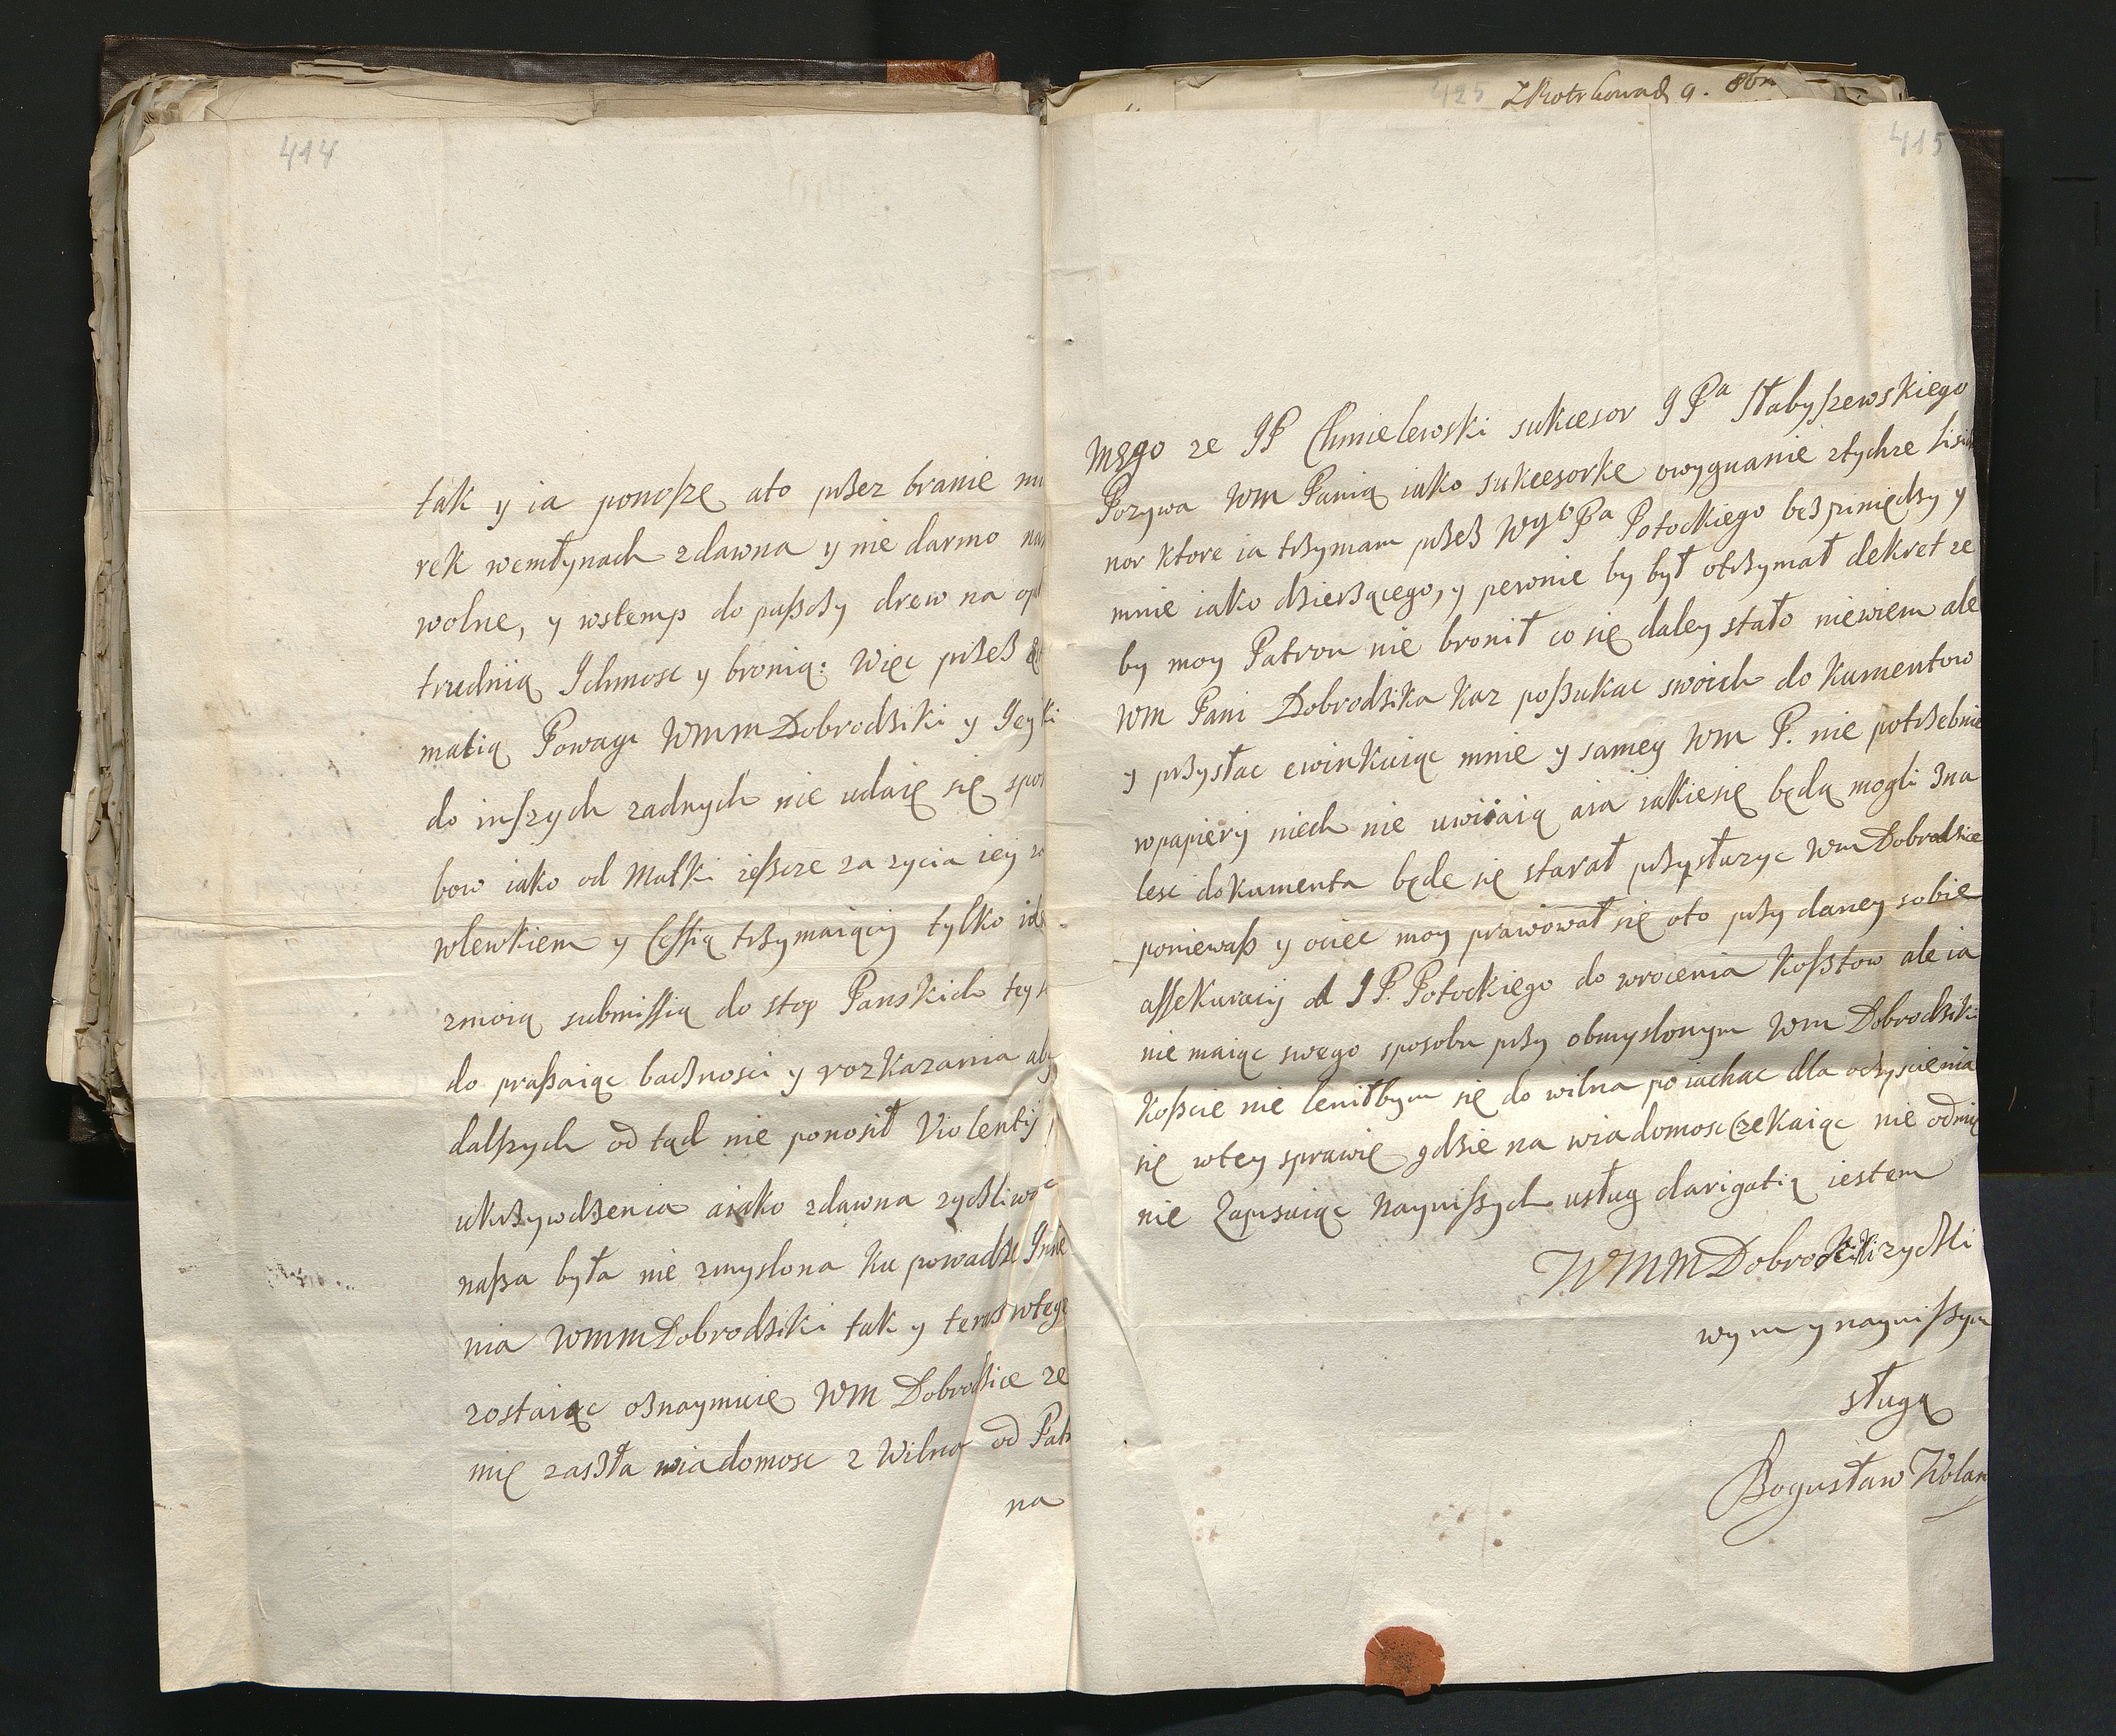 414
tak y ia ponoszę ato przez branie
rek wemłynach zdawna y nie darmo
wolne, y wstemp do pusczy drew na
trudnią Ichmosc y bronią: Więc przeß
matią Powagi WMM Dobrodziki y
do inszych zadnych nie udaię się
bow iako od Matki ieszcze za zycia iey
wlewkiem y Cessią trzymaiący tylko
zmoią submissią do stop Panskich
do praszaiąc baczności y rozkazania
dalszych od tąd nie ponosił Violentij
ukrzywdzenia aiako zdawna zyczliwosc
nasza była nie zmyslona ku powadze Imie
nia WMM Dobrodziki tak y teras wtego
zostaiąc oznaymuię WM Dobrodzice ze
mię zaszła wiadomosc z Wilna od
na
425 9. 8br
415
mego ze JP Chmielewski sukcesor JPa Słabyszewskiego
Pozywa WM Panią iako sukcesorkę owygnanie ztychze
nor ktore ia trzymam przeß Wgo Pa Potockiego beß piniędzy y
mnie iako dzierzącego, y pewnie by był otrzymał dekret ze
by moy Patron nie bronił co się daley stało niewiem ale
WM Pani Dobrodzika kaz poszukac swoich do kumentow
y przysłac ewinkuiąc mnie y samey WM P. nie potrzebnie
wpapiery niech nie uwiiaią aia iakiesię będą mogli zna
lesc dokumenta będę się starał przysłuzyc WM Dobrodzice
poniewaß y ociec moy prawował się oto przy daney sobie
assekuracij od JP. Potockiego do wrocenia kosztow ale ia
nie maiąc swego sposobu przy obmyslonym WM Dobrodziki
koszcie nie leniłbym się do wilna po iachac dla oczyscienia
się wtey sprawie gdzie na wiadomosc czekaiąc nie odmię
nie Zapisuiąc nayniszych usług clarigatią iestem
WMM Dobrodziki zyczli
wym y nayniszym
sługą
Bogusław Wolan